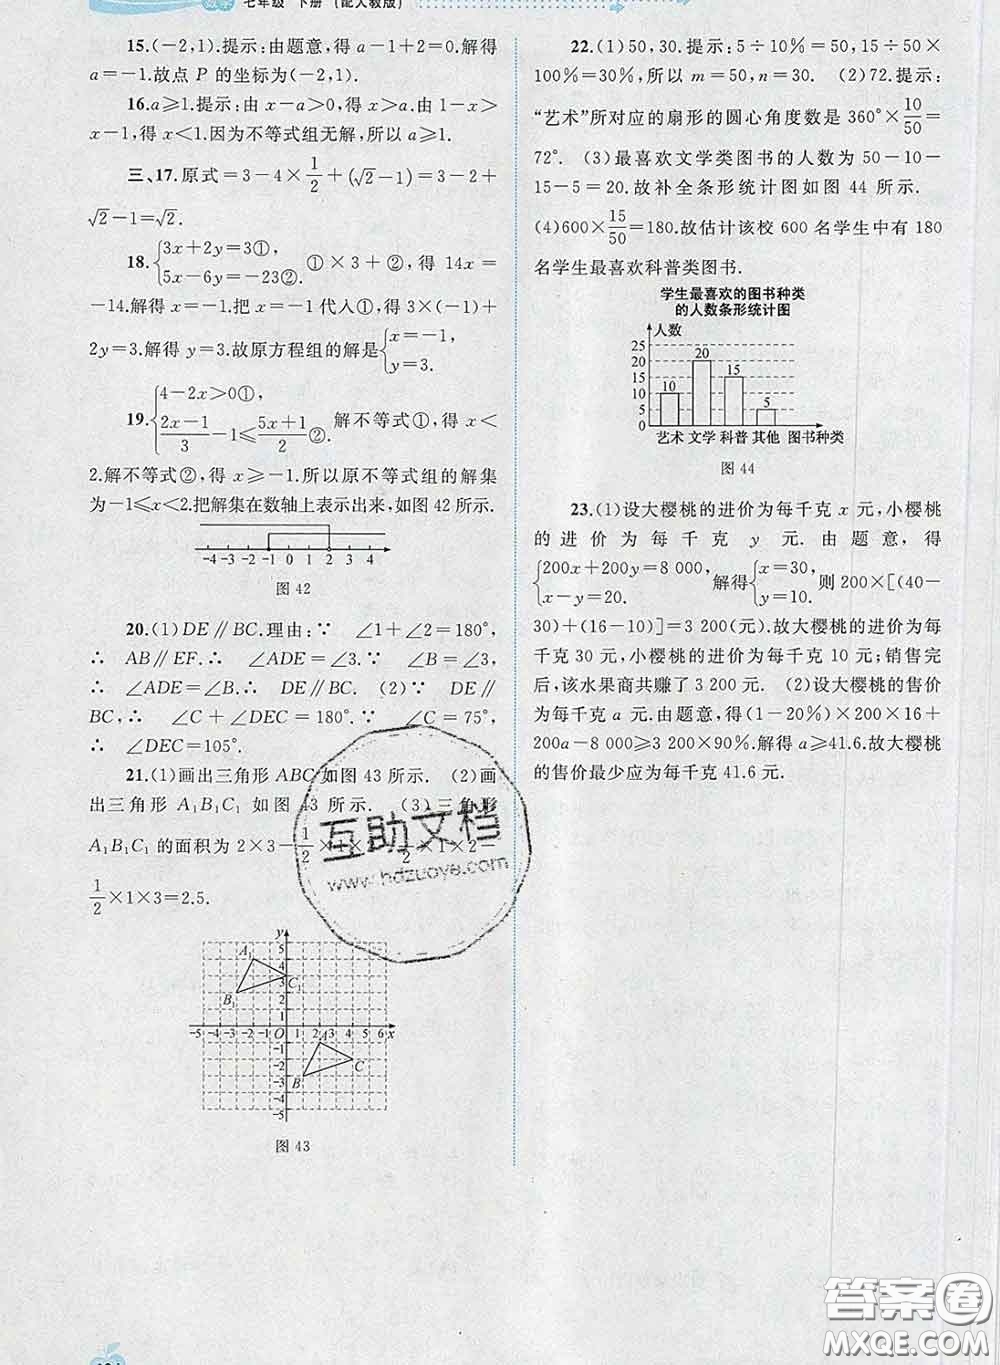 七年级 下册 (配人教版)
15.(-2,1).提示:由题意,得 a-1+2=0.解得
a=-1.故点 P 的坐标为(-2,1).
16.a⩾1.提示:由 x-a>0,得 x>a.由 1-x>
x-1,得 x<1.因为不等式组无解,所以 a⩾1.
三、17.原式=3-4×1/2+(√2-1)=3-2+
√2-1=√2.
18.{3x+2y=3①, 5x-6y=-23②. ①×3+②,得 14x=
-14.解得 x=-1.把 x=-1 代入①,得 3×(-1)+
2y=3.解得 y=3.故原方程组的解是{x=-1, y=3.
19.{4-2x>0①, (2x-1)/3-1⩽(5x+1)/2②. 解不等式①,得 x<
2.解不等式②,得 x⩾-1.所以原不等式组的解集
为-1⩽x<2.把解集在数轴上表示出来,如图 42 所示.
-4 -3 -2 -1 0 1 2 3 4
图 42
20.(1)DE∥BC.理由:∵ ∠1+∠2=180°,
∴ AB∥EF.∴ ∠ADE=∠3.∵ ∠B=∠3,
∴ ∠ADE=∠B.∴ DE∥BC. (2)∵ DE∥
BC,∴ ∠C+∠DEC=180°.∵ ∠C=75°,
∴ ∠DEC=105°.
21.(1)画出三角形 ABC 如图 43 所示. (2)画
出三角形 A₁B₁C₁ 如图 43 所示. (3)三角形
A₁B₁C₁ 的面积为 2×3-1/2×1×2-1/2×1×2-
1/2×1×3=2.5.
y
5
4
3
A₁
B₁
C₁
-5 -4 -3 -2 -1 O 1 2 3 4 5 6 x
A
B
C
-3
-4
-5
图 43
22.(1)50,30.提示:5÷10%=50,15÷50×
100%=30%,所以 m=50,n=30. (2)72.提示:
“艺术”所对应的扇形的圆心角度数是 360°×10/50=
72°. (3)最喜欢文学类图书的人数为 50-10-
15-5=20.故补全条形统计图如图 44 所示.
(4)600×15/50=180.故估计该校 600 名学生中有 180
名学生最喜欢科普类图书.
学生最喜欢的图书种类
的人数条形统计图
人数
25
20
15
10
5
10 20 15 5
艺术 文学 科普 其他 图书种类
图 44
23.(1)设大樱桃的进价为每千克 x 元,小樱桃
的进价为每千克 y 元.由题意,得
{200x+200y=8 000, x-y=20. 解得{x=30, y=10. 则 200×[(40-
30)+(16-10)]=3 200(元).故大樱桃的进价为每
千克 30 元,小樱桃的进价为每千克 10 元;销售完
后,该水果商共赚了 3 200 元. (2)设大樱桃的售价
为每千克 a 元.由题意,得(1-20%)×200×16+
200a-8 000⩾3 200×90%.解得 a⩾41.6.故大樱桃
的售价最少应为每千克 41.6 元.
互助文档
www.hdzuoye.com
答案圈
MXQE.COM